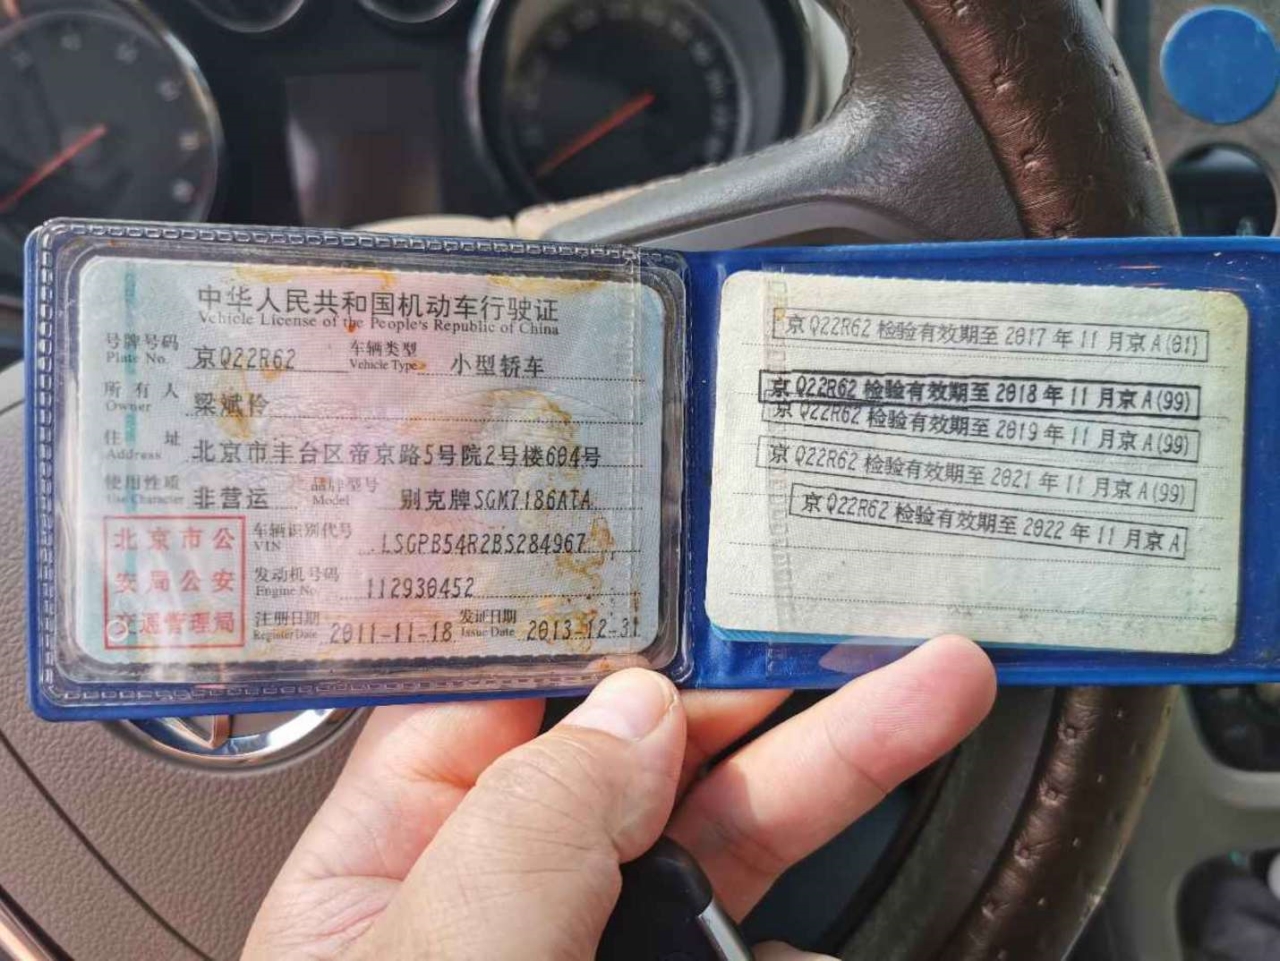 中华人民共和国机动车行驶证
Vehicle License of the People's Republic of China
号牌号码 京Q22R62 车辆类型 小型轿车
Plate No. Vehicle Type
所有人 梁斌伶
Owner
住址 北京市丰台区帝京路5号院2号楼604号
Address
使用性质 非营运 品牌型号 别克牌SGM7186ATA
Use Character Model
北京市公
安局公安
交通管理局
车辆识别代号 LSGPB54R2BS284967
VIN
发动机号码 112930452
Engine No.
注册日期 2011-11-18 发证日期 2013-12-31
Register Date Issue Date
京Q22R62 检验有效期至 2017 年 11 月京A(01)
京Q22R62 检验有效期至 2018 年 11 月京A(99)
京Q22R62 检验有效期至 2019 年 11 月京A(99)
京Q22R62 检验有效期至 2021 年 11 月京A(99)
京Q22R62 检验有效期至 2022 年 11 月京A